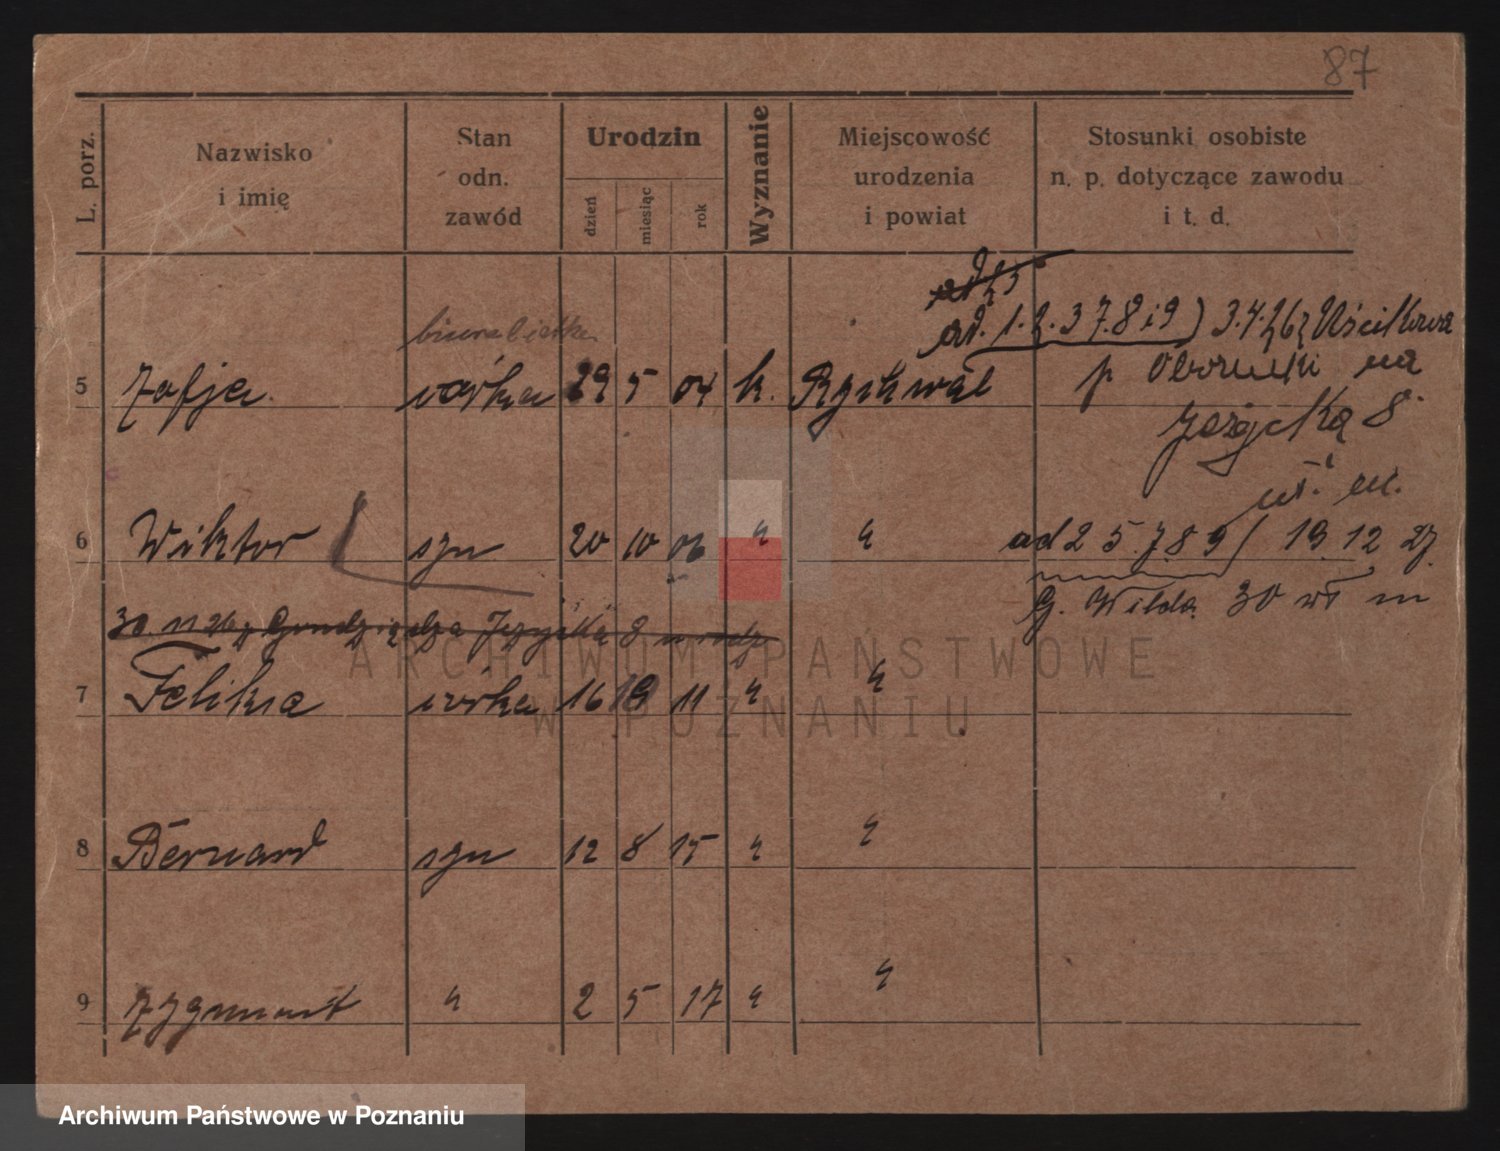 87
L. porz.
Nazwisko
i imię
Stan
odn.
zawód
Urodzin
dzień
miesiąc
rok
Wyznanie
Miejscowość
urodzenia
i powiat
Stosunki osobiste
n. p. dotyczące zawodu
i t. d.
ad. 1. 2. 3 7. 8 i 9) 3.4.26 z Uścikowa
p Oborniki na
Jeżycką 8
5 Zofja córka 29 5 04 k. Rychwał
6 Wiktor syn 20 10 06 " "
ad 2 5. 7 8 9 / 19. 12 27.
G. Wilda 30
30. 11 26 z Grudziądza Jeżycka 8
7 Feliksa córka 16 19 11 " "
8 Bernard syn 12 8 15 " "
9 Zygmunt " 2 5 17 " "
ARCHIWUM PAŃSTWOWE
W POZNANIU
Archiwum Państwowe w Poznaniu